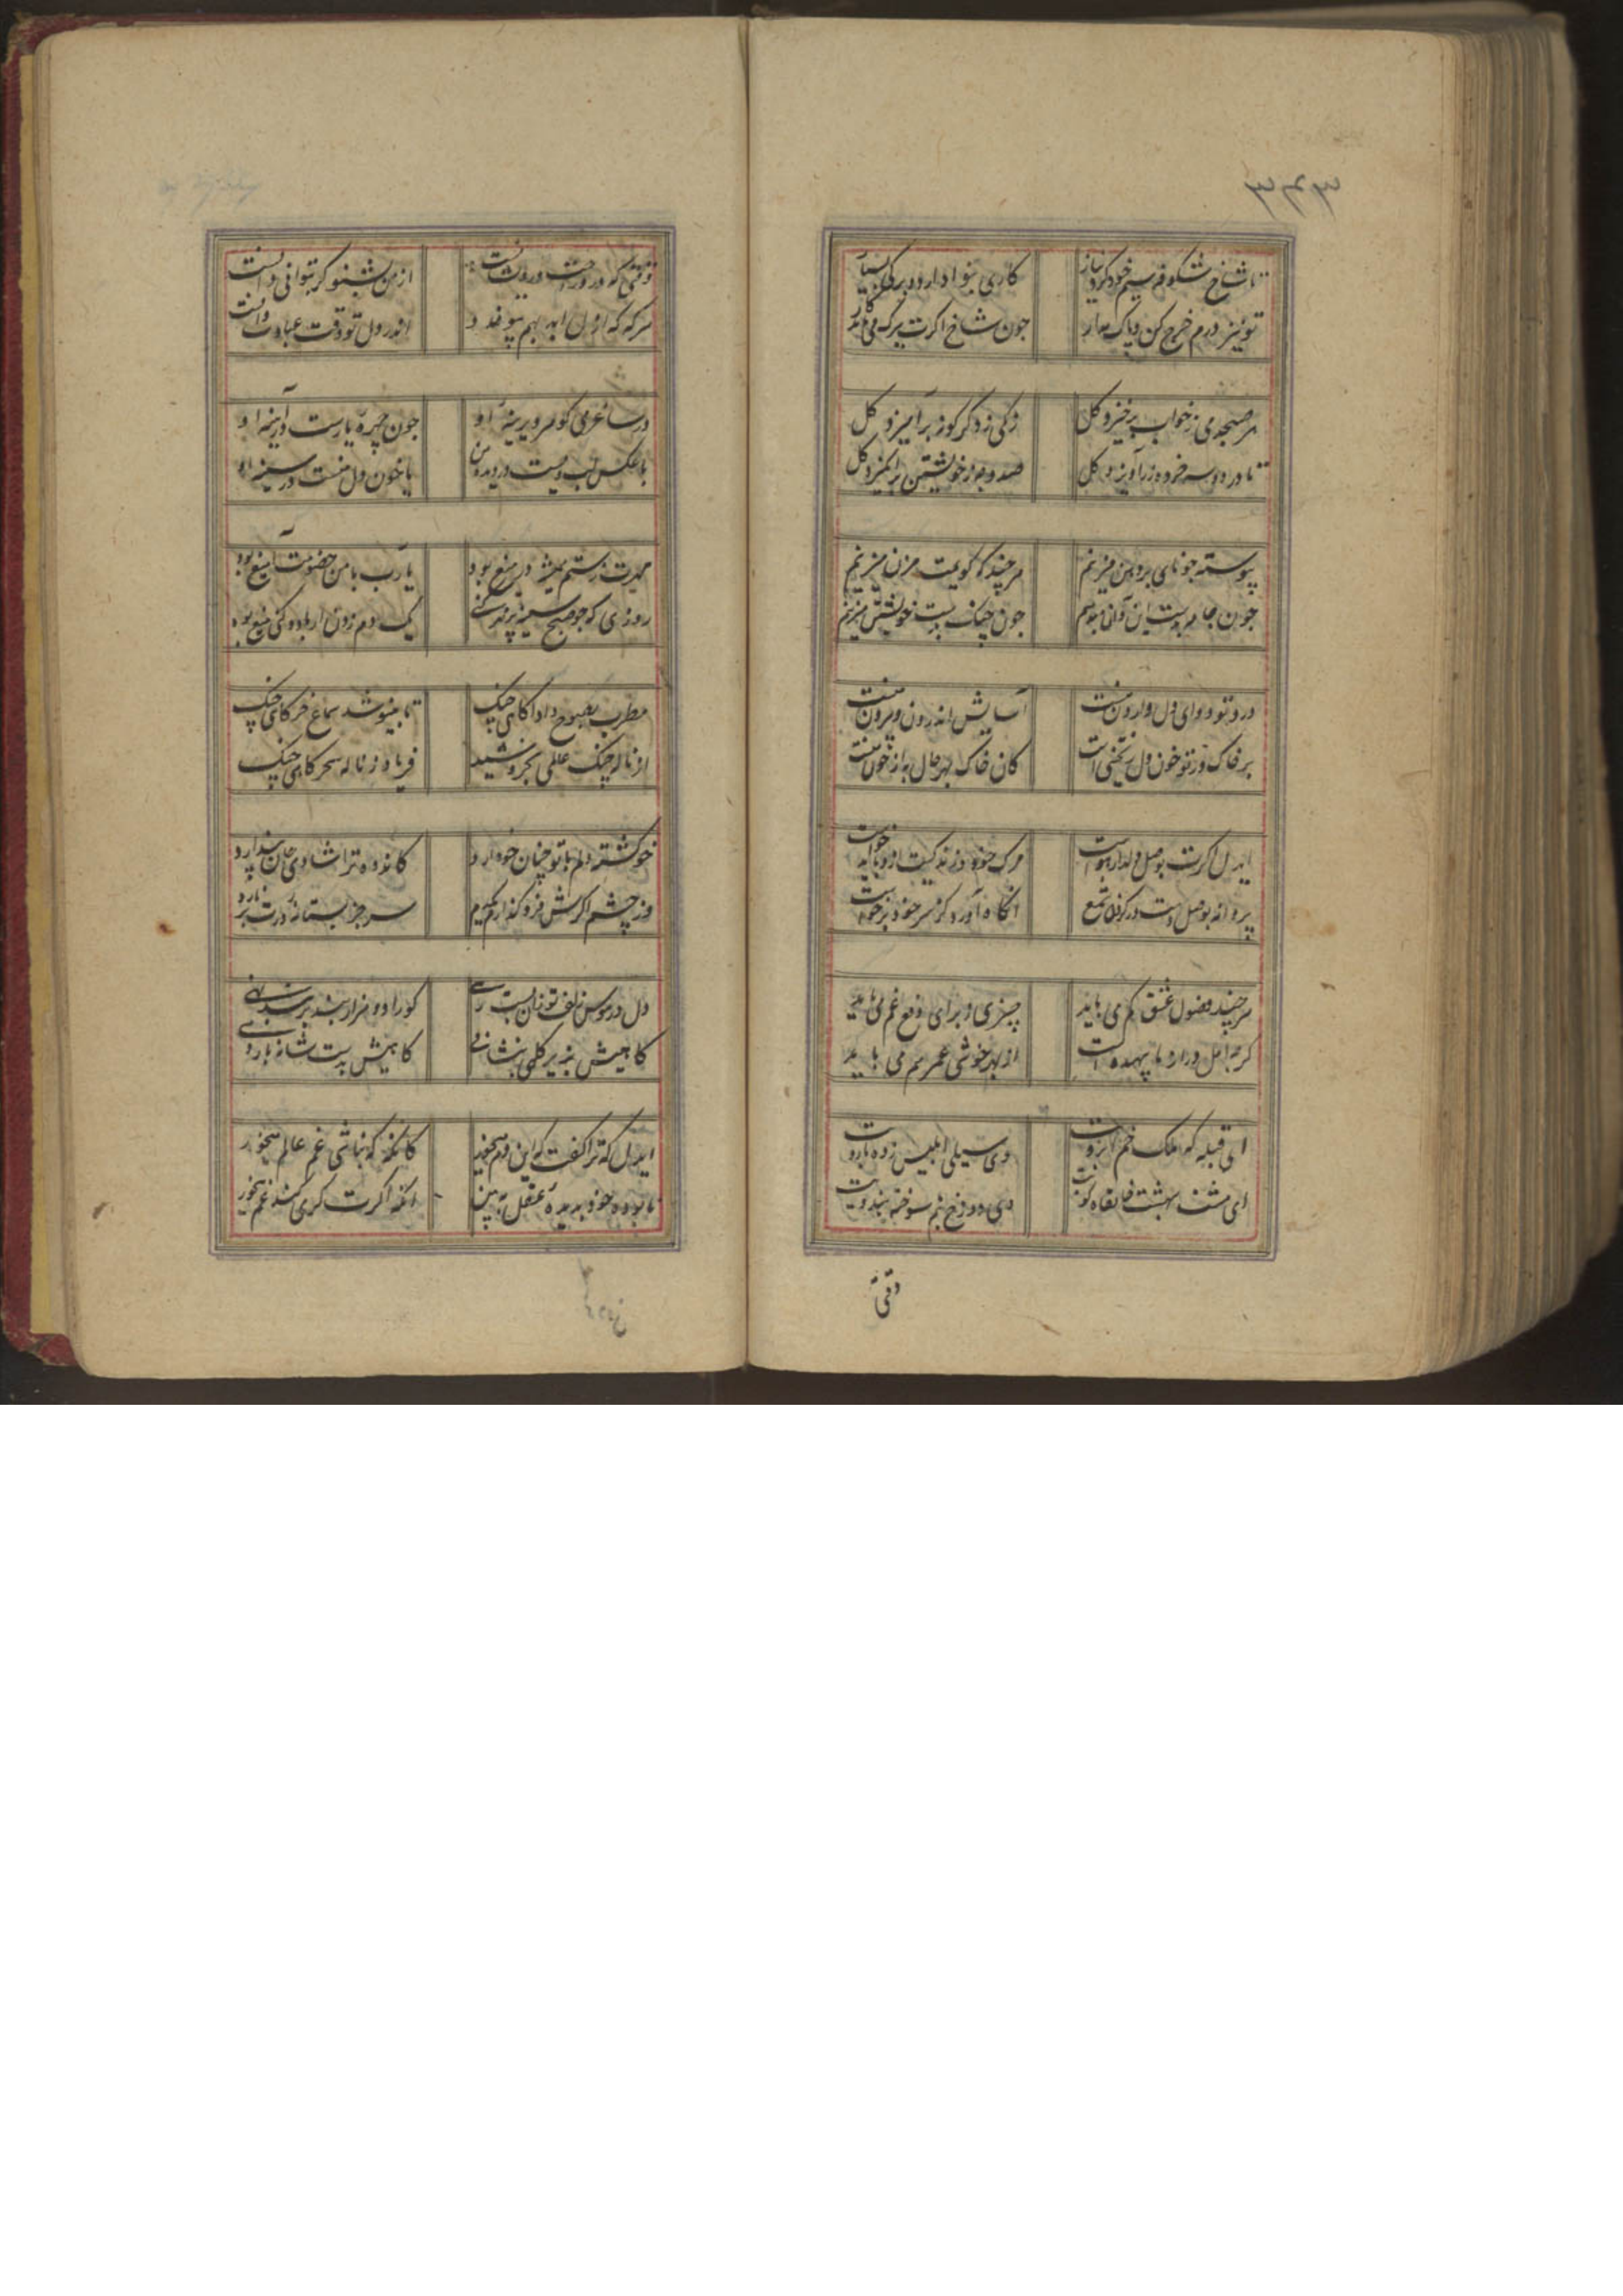 تا شاخ شکوفه سیم خود کرد نیاز
کاری بنوا دارد و برگی بسیار
تو نیز درم خرج کن و پاک مدار
جون شاخ اکرت برک می
هر صبحدمی ز خواب برخیزد کل
زکی ز دکر کوز برآمیزد کل
تا در دو سه خرده زر آویزد کل
صد وجه ز خویشتن برانکیزد کل
پیوسته جو نای بر دهن میزنم
هر چند که کویمت مزن میزنم
جون جامه بدست این و آن
جون چنک بدست خویشتن میزنم
درد تو دوای دل وارون منست
آسایش اندرون و بیرون منست
بر خاک در تو خون دل ریختنی است
کان خاک بهر حال به از خون منست
ایدل اکرت بوصل دلدار هواست
مرک خود و زندکیت ازو باید خواست
پروانه بوصل دست در کردن شمع
آنکاه آورد کز سر خود برخاست
هر چند فضول عشق کم می باید
چیزی ز برای دفع غم می باید
کر چه امل دراز نا بیهده است
از بهر خوشی عمر هم می باید
ای قبله که ملک خم ابروت
وی سیلی ابلیس زده بازوت
ای هشت بهشت خانقاه کویت
وی دوزخ هم سوخته هندویت
وقتی
وقتی که درو راحت درویشانست
از من بشنو کر بتوانی دانست
هر که که ازل ابد بهم پیوندد
اندر دل تو وقت عبادت دانست
در ساغر می کوهر دیرینه او
جون چهره یارست در آینه او
با عکس لب ویست در دیده من
یا خون دل منست در سینه او
مهرت ز ستم همیشه در میغ بود
یا رب با من خصومت آمیغ بود
روزی که جو صبح سینه پر مهر کنی
یک دم زدن ار باد کنی تیغ بود
مطرب بصبوح داد آکاهی چنک
تا بنیوشد سماع خرکاهی چنک
از ناله چنک عالمی بخروشید
فریاد ز ناله سحرکاهی چنک
خو کشته دلم با تو چنان خو دارد
کاندوه ترا شادی جان پندارد
وز چشم اکرش فرو کذارم
سر جز بستانه درت بر نارد
دل در هوس زلف تو زان بست رسی
کو را دو هزار بند بر بند نهی
کاهیش بزیر کلهی بنشانی
کاهیش بدست شانه باز دهی
ایدل که ترا کفت که این دم میخور
کانکه که نباشی غم عالم میخور
نابوده خود بدیده عقل ببین
آنکه اکرت کری کند غم میخور